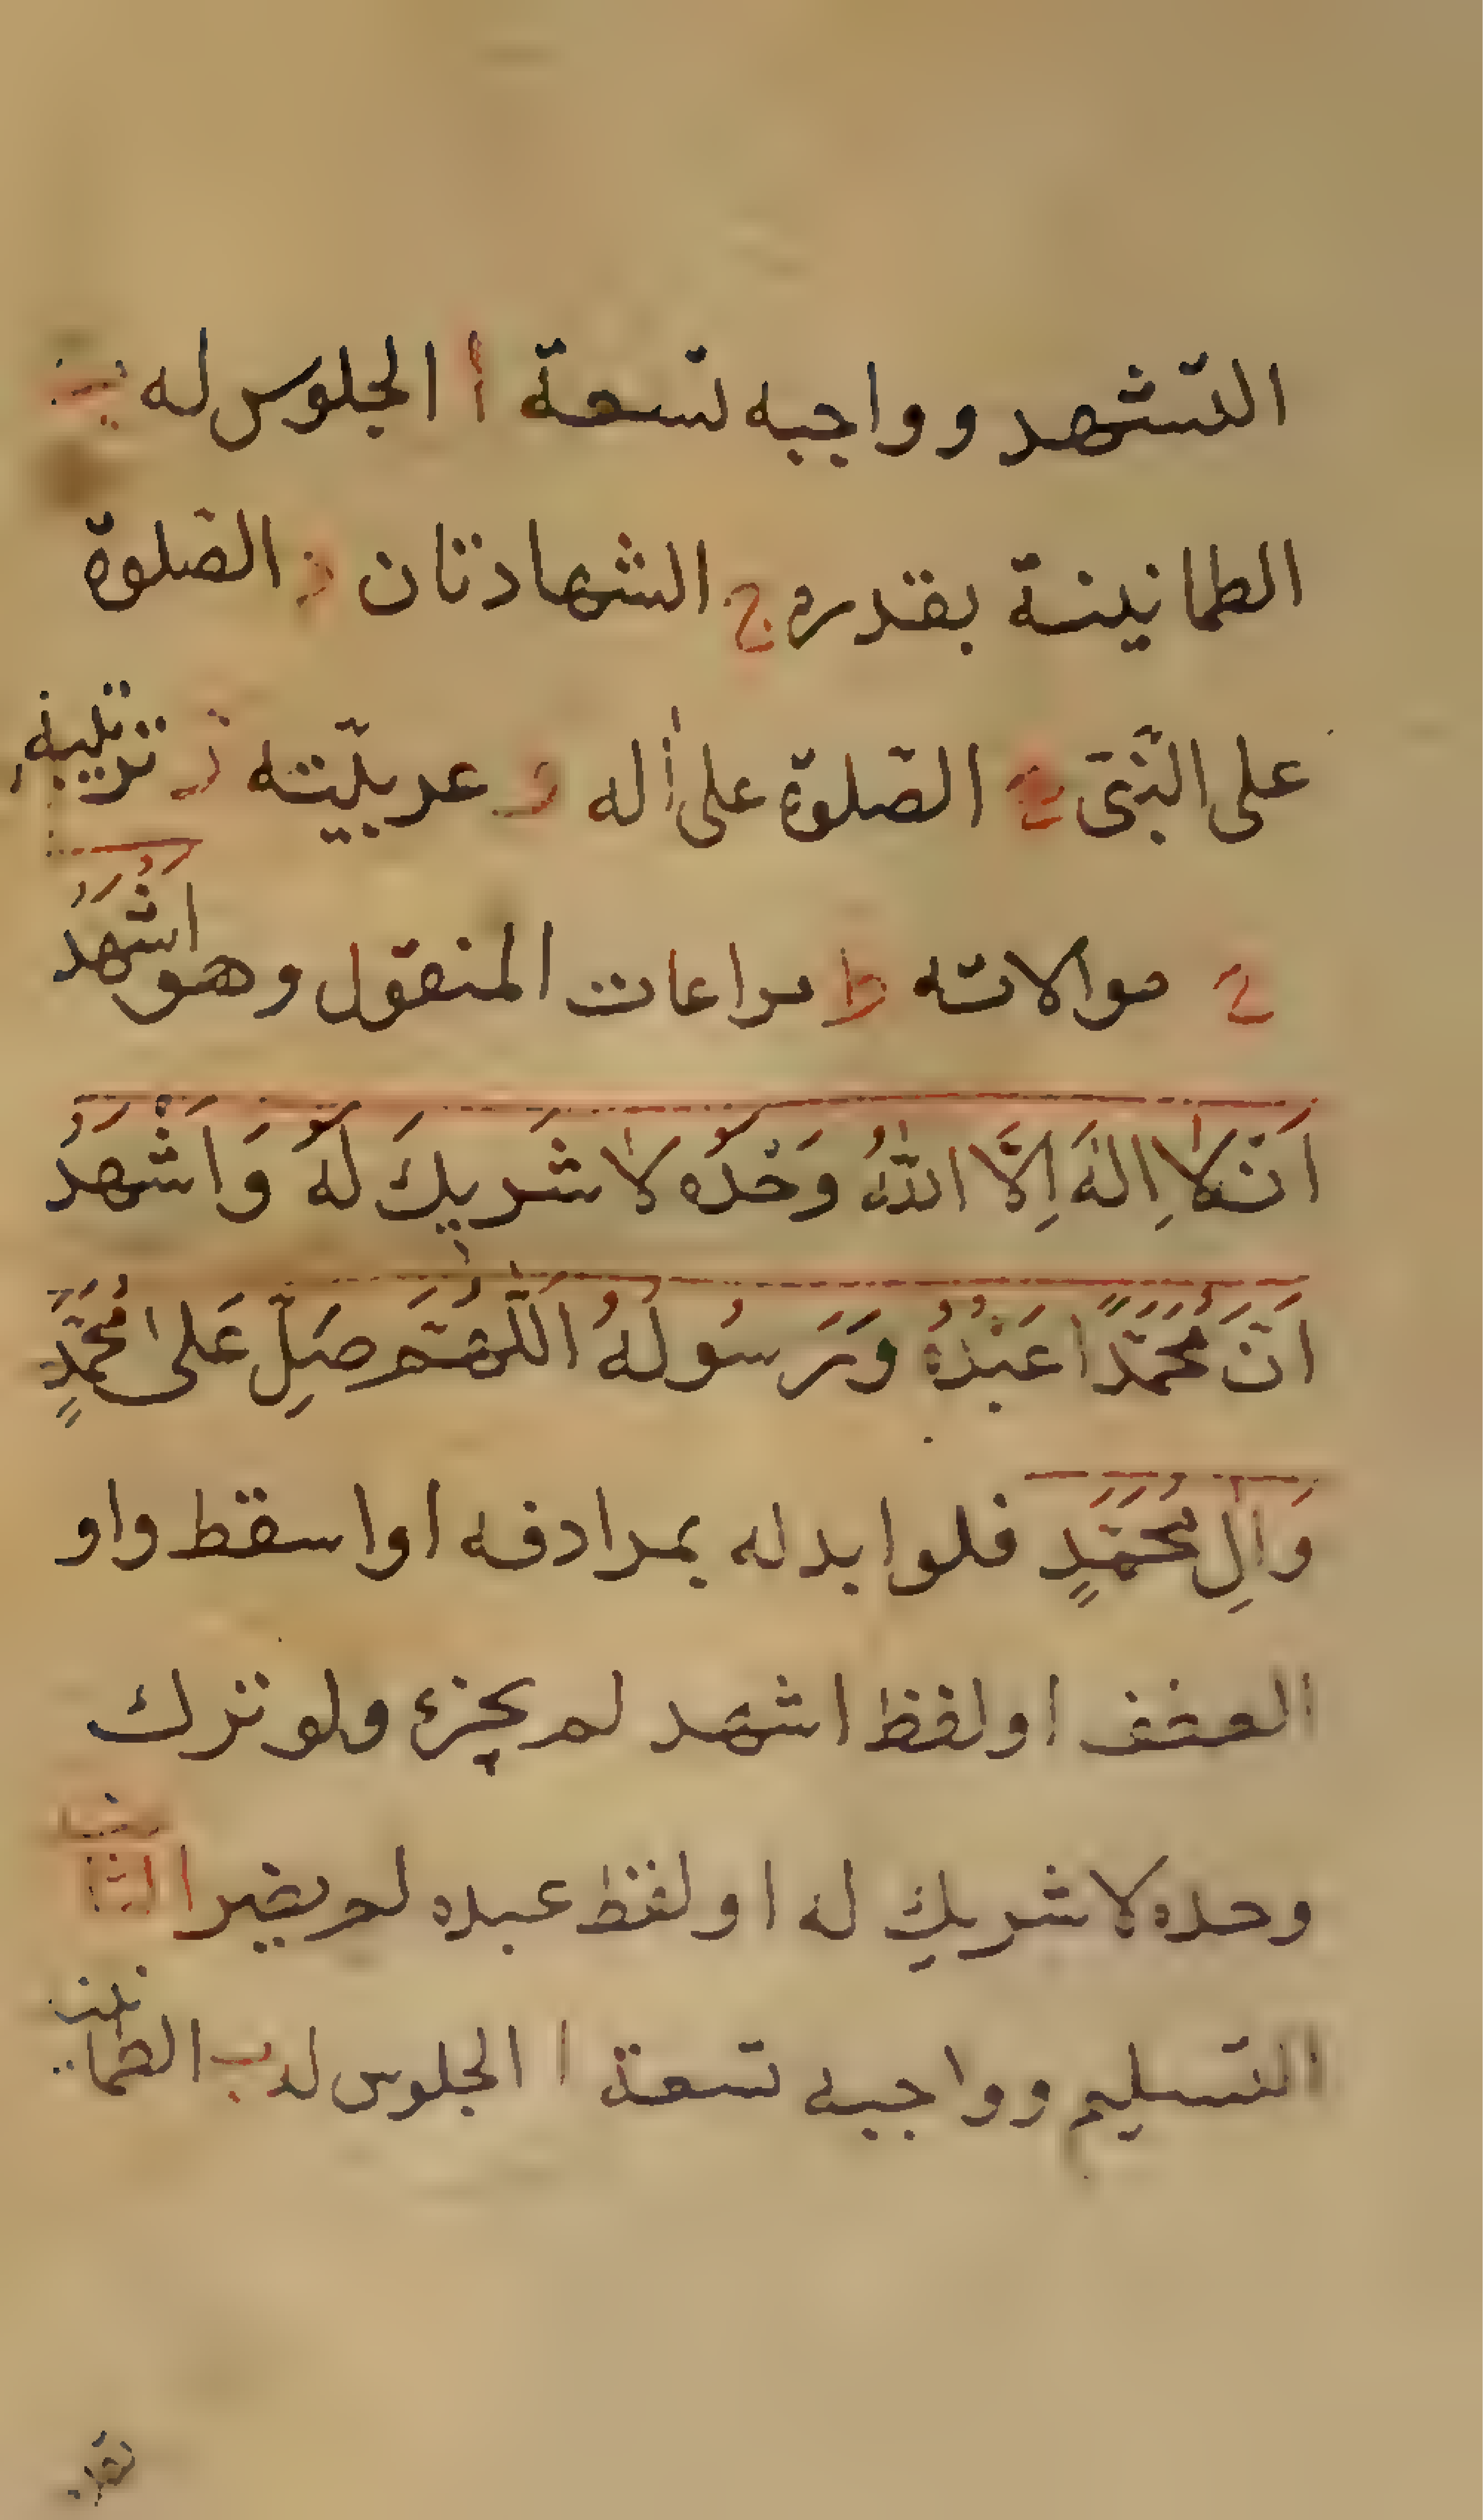 التشهد وواجبه تسعة أ الجلوس له ب
الطمانينة بقدره ج الشهادتان د الصلوة
على النبى ه الصلوة على اله و عربيته ز ترتيبه
ح موالاته ط مراعات المنقول وهو اشهد
اَنْ لا اِلهَ اِلَّا اللّٰهُ وَحْدَهُ لا شَرِيكَ لَهُ وَاَشْهَدُ
اَنَّ مُحَمَّدًا عَبْدُهُ وَرَسُولُهُ اَللّٰهُمَّ صَلِّ عَلى مُحَمَّدٍ
وَالِ مُحَمَّدٍ فلو ابدله بمرادفه او اسقط واو
العطف او لفظ اشهد لم يجزئ ولو ترك
وحده لا شريك له او لفظ عبده لم يضر الثامن
التسليم وواجبه تسعة ا الجلوس له ب الطمانينة
بقدره